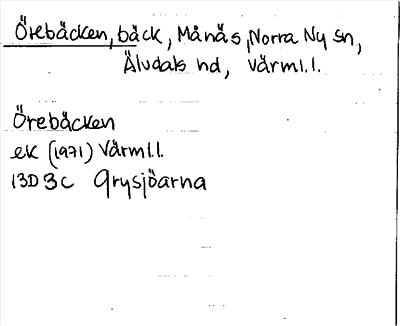 Örebäcken, bäck, Månäs, Norra Ny sn,
Älvdals hd, Värml.l.
Örebäcken
ek (1971) Värml.l.
13D 3c Grysjöarna